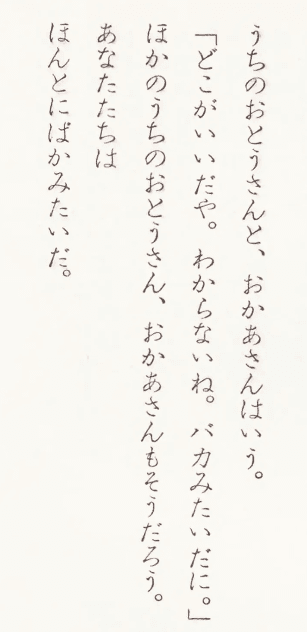 うちのおとうさんと、おかあさんはいう。
「どこがいいだや。わからないね。バカみたいだに。」
ほかのうちのおとうさん、おかあさんもそうだろう。
あなたたちは
ほんとにばかみたいだ。